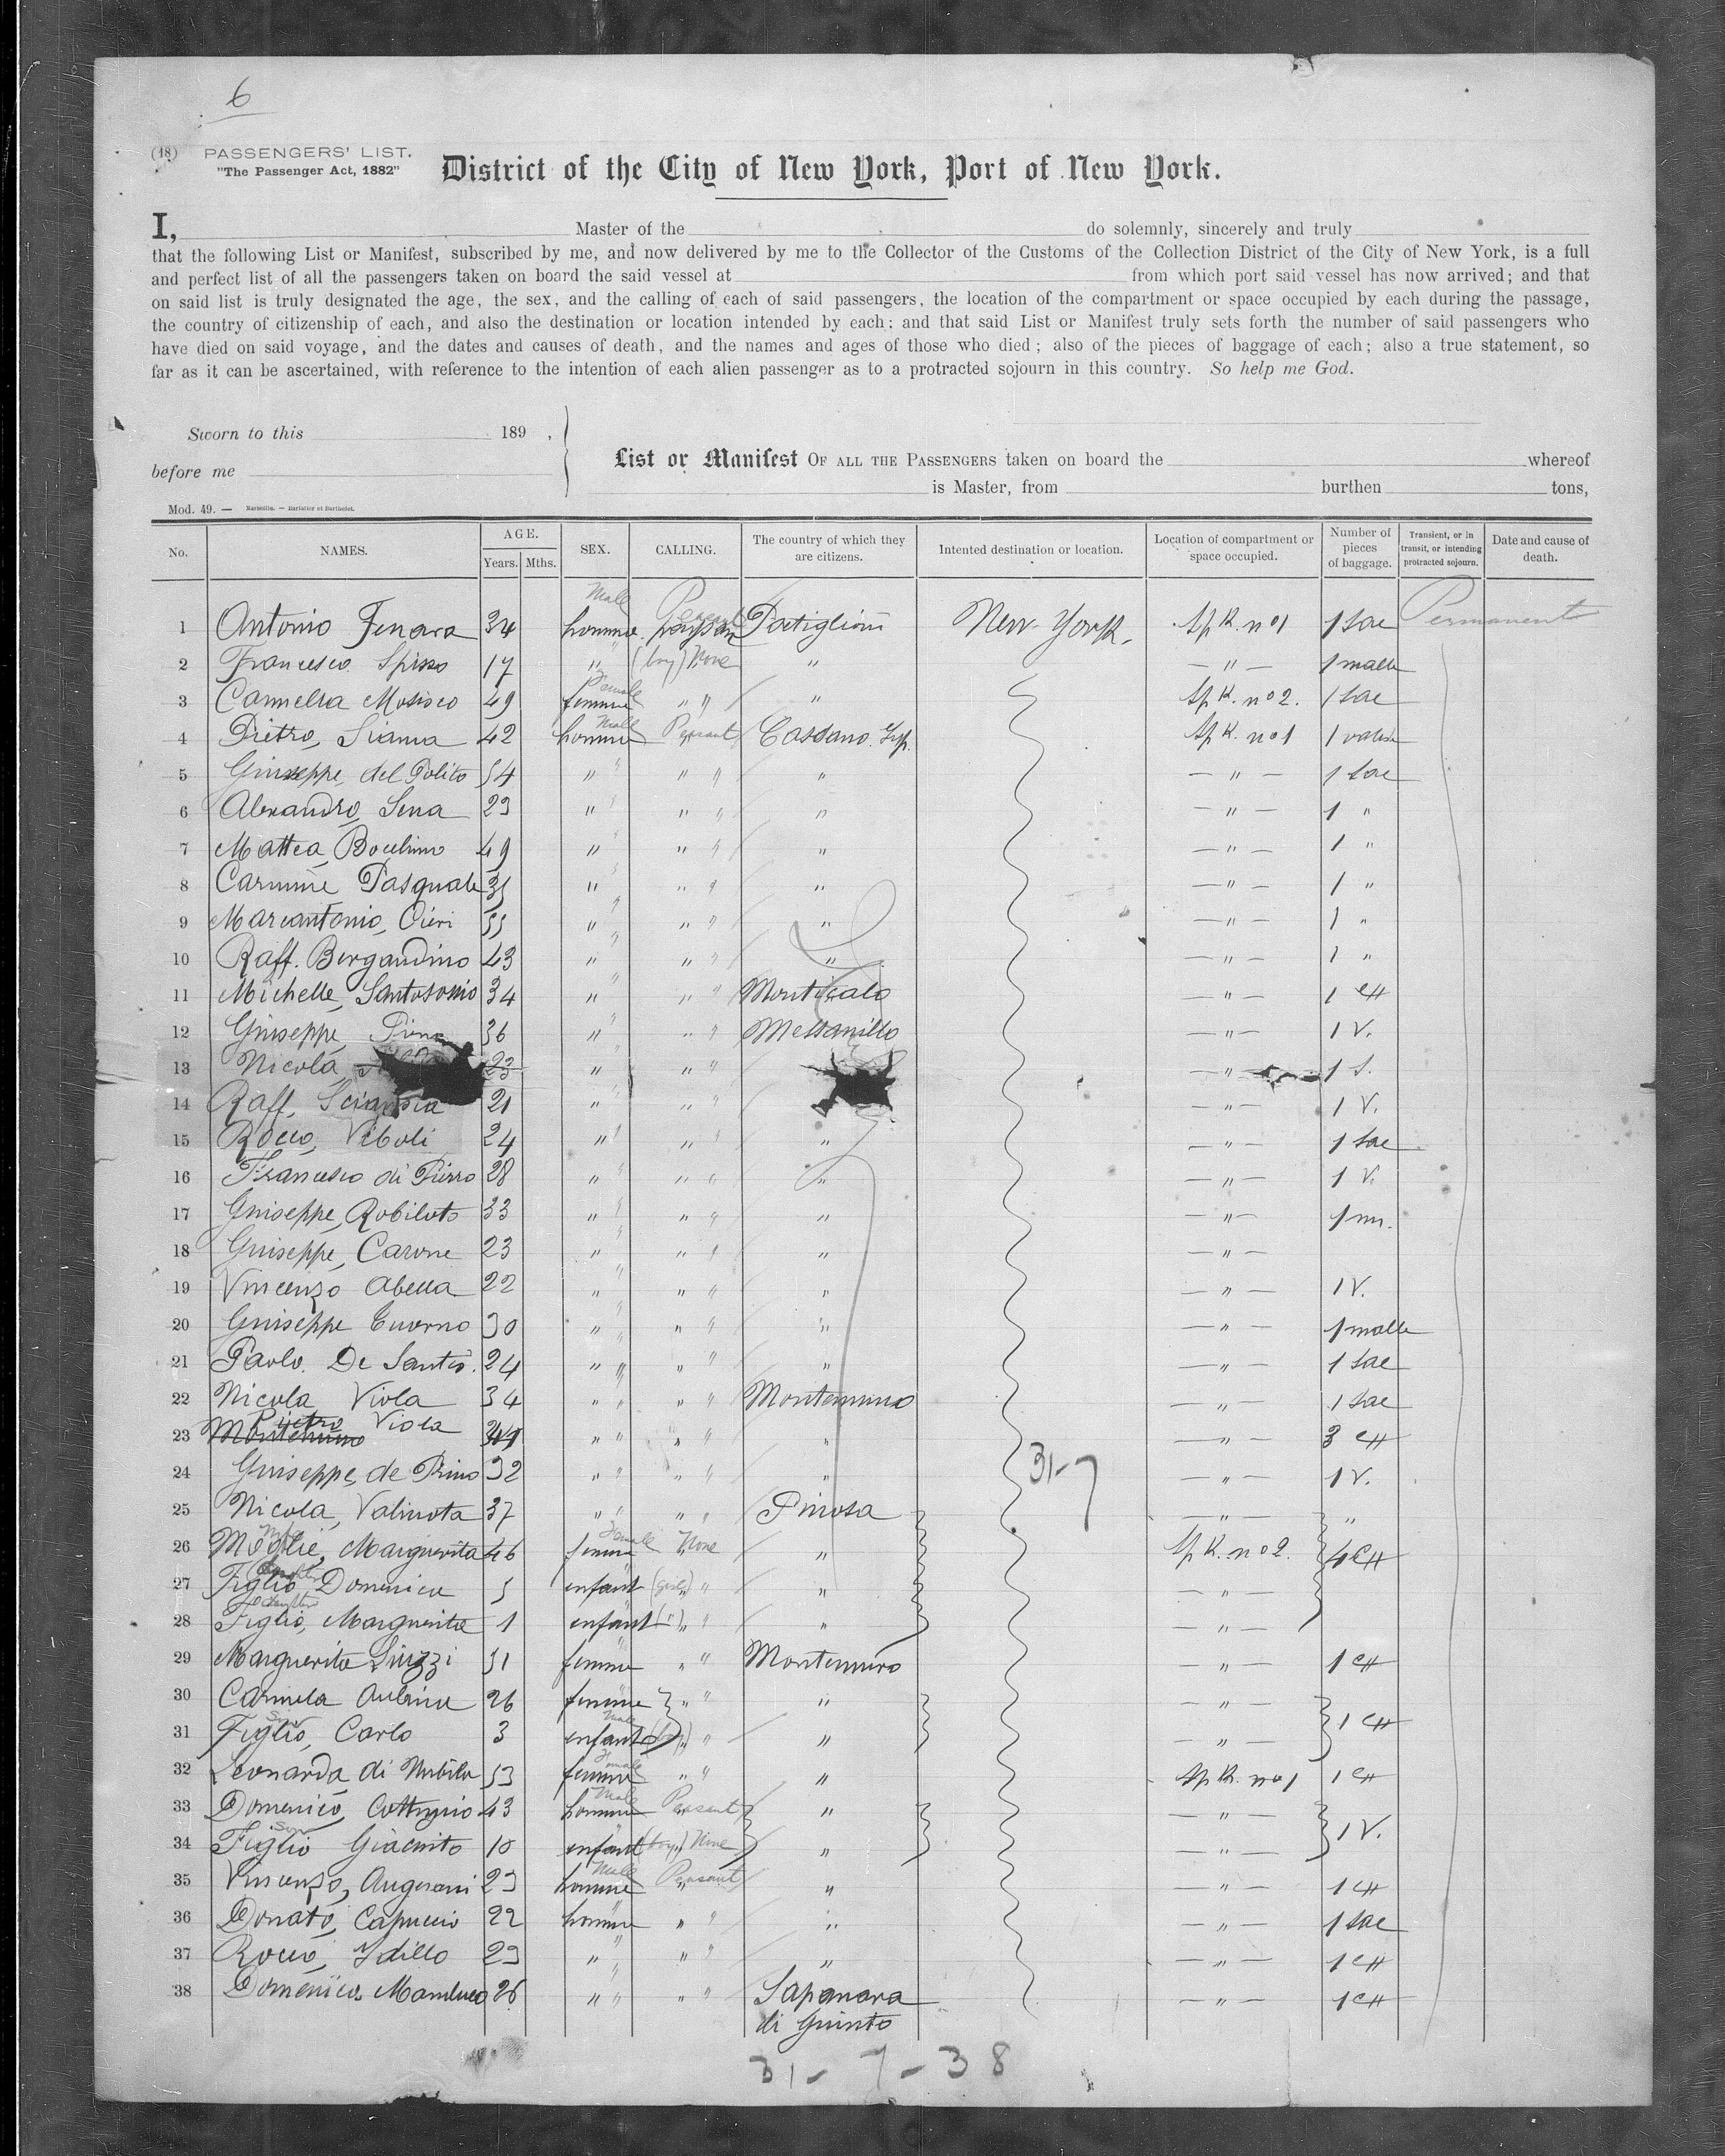 6
(18) PASSENGERS' LIST.
"The Passenger Act, 1882"
District of the City of New York, Port of New York.
I, Master of the do solemnly, sincerely and truly
that the following List or Manifest, subscribed by me, and now delivered by me to the Collector of the Customs of the Collection District of the City of New York, is a full
and perfect list of all the passengers taken on board the said vessel at from which port said vessel has now arrived; and that
on said list is truly designated the age, the sex, and the calling of each of said passengers, the location of the compartment or space occupied by each during the passage,
the country of citizenship of each, and also the destination or location intended by each; and that said List or Manifest truly sets forth the number of said passengers who
have died on said voyage, and the dates and causes of death, and the names and ages of those who died; also of the pieces of baggage of each; also a true statement, so
far as it can be ascertained, with reference to the intention of each alien passenger as to a protracted sojourn in this country. So help me God.
Sworn to this 189 ,
before me
List or Manifest OF ALL THE PASSENGERS taken on board the whereof
is Master, from burthen tons,
Mod. 49. — Marseille. — Barlatier et Barthelet.
No. NAMES. AGE. Years. Mths. SEX. CALLING. The country of which they are citizens. Intented destination or location. Location of compartment or space occupied. Number of pieces of baggage. Transient, or in transit, or intending protracted sojourn. Date and cause of death.
1 Antonio Fenara 34 Male homme Peasant paysan New-York. Sp K. no 1 1 sac Permanent
2 Francesco Spisso 17 " (boy) None " — " — 1 malle
3 49 Female femme " " " Sp K. no 2. 1 sac
4 Pietro, Sianna 42 Male homme Peasant Cassano Sp K. no 1 1 valise
5 Giuseppe del Polito 54 " " " " — " — 1 sac
6 Alexandro, Sena 23 " " " " — " — 1 "
7 Mattea, 49 " " " " — " — 1 "
8 Carmine Pasquale 35 " " " " — " — 1 "
9 Marcantonio, Cieri 55 " " " " — " — 1 "
10 Raff. Bergandino 43 " " " " — " — 1 "
11 Michelle, Santosonio 34 " " " — " — 1 cH
12 Giuseppe, 36 " " " — " — 1 V.
13 Nicola, 23 " " " — " — 1 S.
14 Raff, 21 " " " — " — 1 V.
15 Rocco, Viboli 24 " " " " — " — 1 sac
16 Francesco di Pierro 28 " " " " — " — 1 V.
17 Giuseppe, Robiloto 33 " " " " — " — 1 m.
18 Giuseppe, Carone 23 " " " " — " —
19 Vincenzo Abella 22 " " " " — " — 1 V.
20 Giuseppe Cuorno 30 " " " " — " — 1 malle
21 Paolo. De Santis. 24 " " " " — " — 1 sac
22 Nicola Viola 34 " " " Montemurro — " — 1 sac
23 Montemurro Pietro Viola " " " " — " — 3 cH
24 Giuseppe, de Pino 32 " " " " 31-7 — " — 1 V.
25 Nicola, Valinota 37 " " " — " — "
26 Moglie, Marguerita 46 Female femme None " Sp K. no 2. 4 cH
27 Figlio, Domenica 5 enfant (girl) " " — " —
28 Daughter Figlio, Marguerita 1 enfant (") " " — " —
29 Marguerita 51 femme " " Montemurro — " — 1 cH
30 Carmela 26 femme " " " — " —
31 Son Figlio, Carlo 3 Male enfant (boy) " " — " — 1 cH
32 Leonarda di Nubila 53 Female femme " " " Sp K. no 1 1 cH
33 Domenico, 43 Male homme Peasant " — " —
34 Son Figlio Giacinto 10 enfant (boy) None " — " — 1 V.
35 Vincenzo, Angerani 23 Male homme Peasant " — " — 1 cH
36 Donato, Capuccio 22 homme " " " — " — 1 sac
37 Rocco, Idillo 23 " " " " — " — 1 cH
38 Domenico. Manduca 26 " " " Saponara di Grumto — " — 1 cH
31-7-38